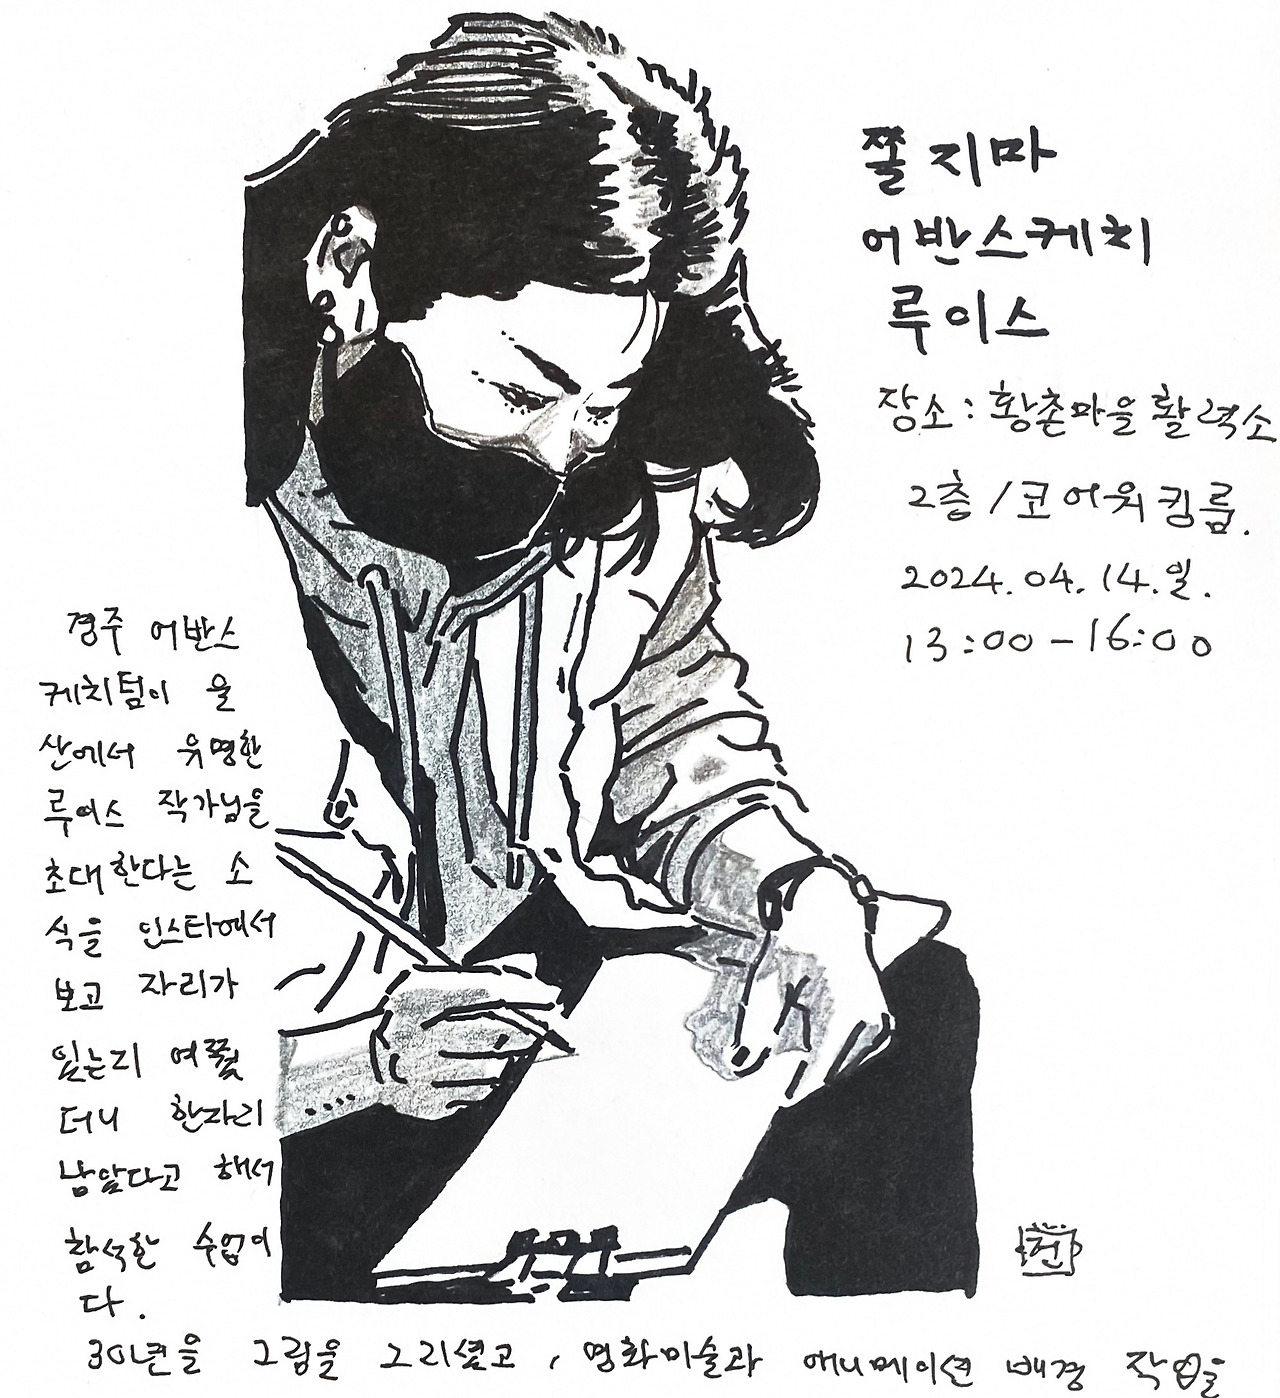 쫄지마
어반스케치
루이스
장소 : 황촌마을활력소
2층 / 코어워킹룸.
2024.04.14.일.
13:00-16:00
경주 어반스
케치텀이 울
산에서 유명한
루이스 작가님을
초대한다는 소
식을 인스타에서
보고 자리가
있는리 여쭸
더니 한자리
남았다고 해서
참석한 수업이
다.
헌
30년을 그림을 그리셨고, 영화미술과 애니메이션 배경 작업을